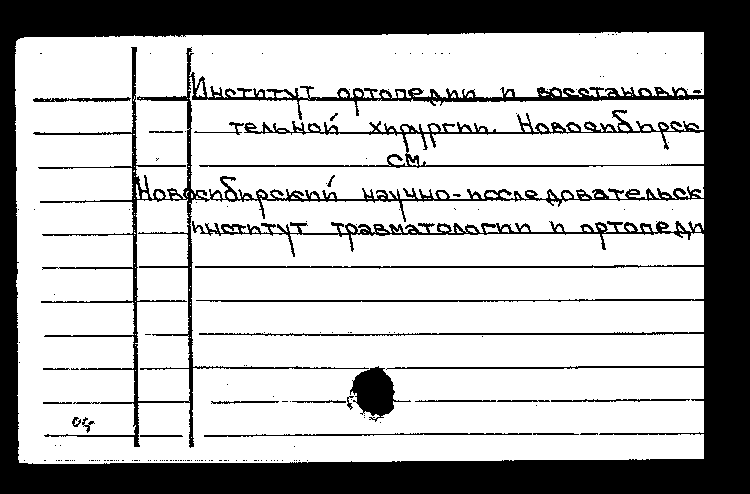 Институт ортопедии и восстанови-
тельной хирургии. Новосибирск
см.
Новосибирский научно-исследовательск
институт травматологии и ортопеди